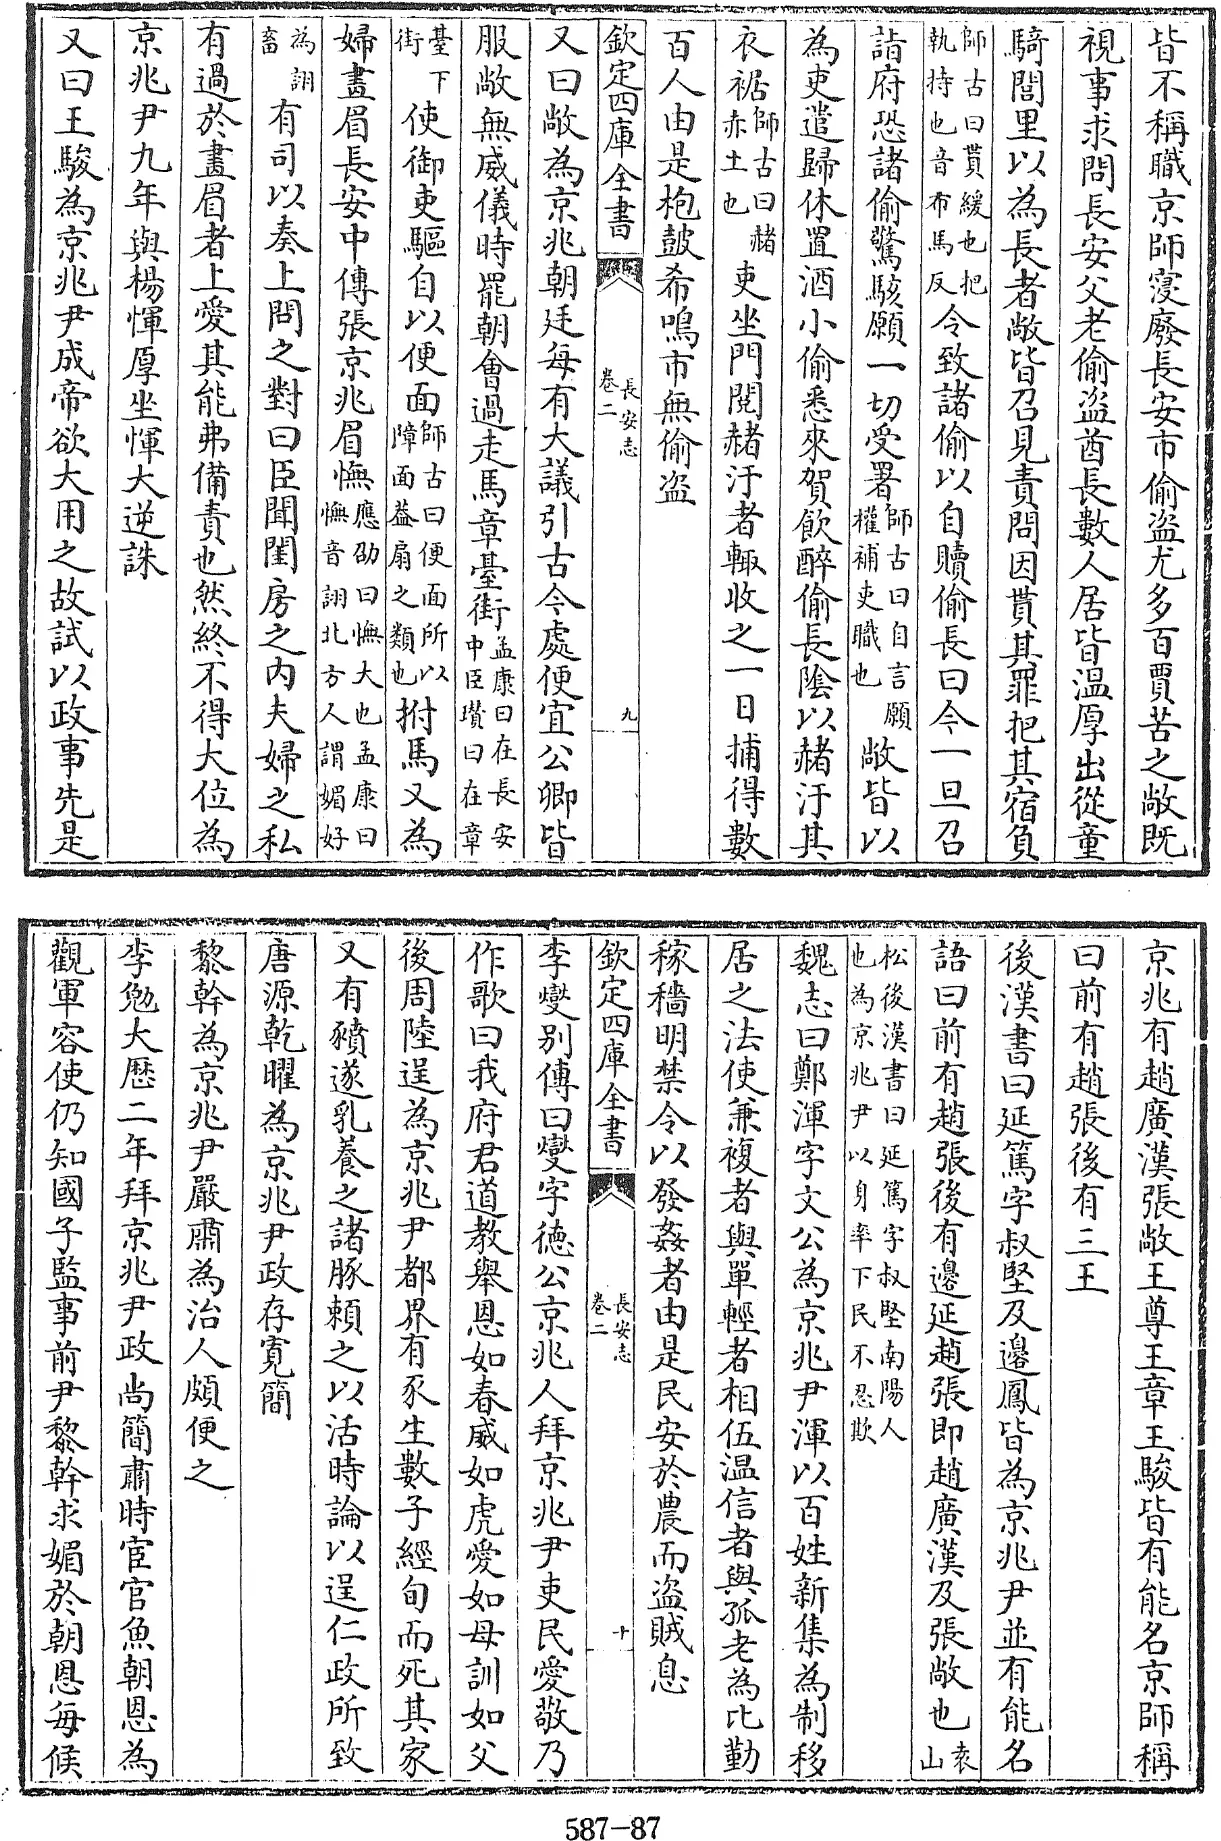 皆不稱職京師寖廢長安市偷盜尤多百賈苦之敞既
視事求問長安父老偷盜酋長數人居皆温厚出從童
騎閭里以為長者敞皆召見責問因貰其罪把其宿負
師古曰貰緩也把
執持也音布馬反
令致諸偷以自贖偷長曰今一旦召
詣府恐諸偷驚駭願一切受署
師古曰自言願
權補吏職也
敞皆以
為吏遣歸休置酒小偷悉來賀飲醉偷長陰以赭汙其
衣裾
師古曰赭
赤土也
吏坐門閲赭汙者輙收之一日捕得數
百人由是枹鼓希鳴市無偷盜
欽定四庫全書
長安志
卷二
九
又曰敞為京兆朝廷每有大議引古今處便宜公卿皆
服敞無威儀時罷朝會過走馬章臺街
孟康曰在長安
中臣瓚曰在章
臺下
街
使御吏驅自以便面
師古曰便面所以
障面葢扇之類也
拊馬又為
婦畫眉長安中傳張京兆眉憮
應劭曰憮大也孟康曰
憮音詡北方人謂媚好
為詡
畜
有司以奏上問之對曰臣聞閨房之内夫婦之私
有過於畫眉者上愛其能弗備責也然終不得大位為
京兆尹九年與楊惲厚坐惲大逆誅
又曰王駿為京兆尹成帝欲大用之故試以政事先是
京兆有趙廣漢張敞王尊王章王駿皆有能名京師稱
曰前有趙張後有三王
後漢書曰延篤字叔堅及邊鳳皆為京兆尹並有能名
語曰前有趙張後有邊延趙張即趙廣漢及張敞也
袁
山
松後漢書曰延篤字叔堅南陽人
也為京兆尹以身率下民不忍欺
魏志曰鄭渾字文公為京兆尹渾以百姓新集為制移
居之法使兼複者與單輕者相伍温信者與孤老為比勤
稼穡明禁令以發姦者由是民安於農而盜賊息
欽定四庫全書
長安志
卷二
十
李燮别傳曰燮字徳公京兆人拜京兆尹吏民愛敬乃
作歌曰我府君道教舉恩如春威如虎愛如母訓如父
後周陸逞為京兆尹都界有豕生數子經旬而死其家
又有豶遂乳養之諸豚賴之以活時論以逞仁政所致
唐源乾曜為京兆尹政存寛簡
黎幹為京兆尹嚴肅為治人頗便之
李勉大歴二年拜京兆尹政尚簡肅時宦官魚朝恩為
觀軍容使仍知國子監事前尹黎幹求媚於朝恩每候
587-87